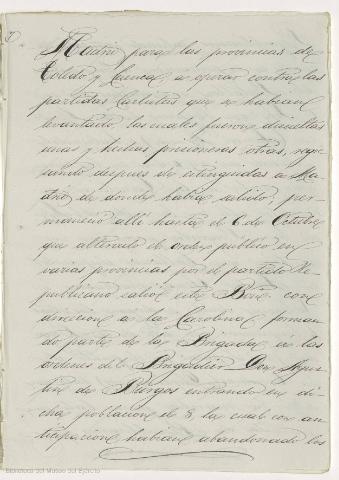 Madrid para las provincias de
Toledo y Cuenca, a operar contra las
partidas Carlistas que se habian
levantado, las cuales fueron disueltas
unas y hechas prisioneras otras, regre
sando despues de estinguidas a Ma
drid de donde habia salido; per
maneció allí hasta el 6 de Octubre
que alterado el orden público en
varias provincias por el partido Re
publicano salió este Bón. con
direccion a la Carolina forman
do parte de la Brigada a las
ordenes del Brigadier Don Agus
tin de Burgos entrando en di
cha poblacion el 8 la cual con an
ticipacion habian abandonado los
Biblioteca del Museo del Ejército